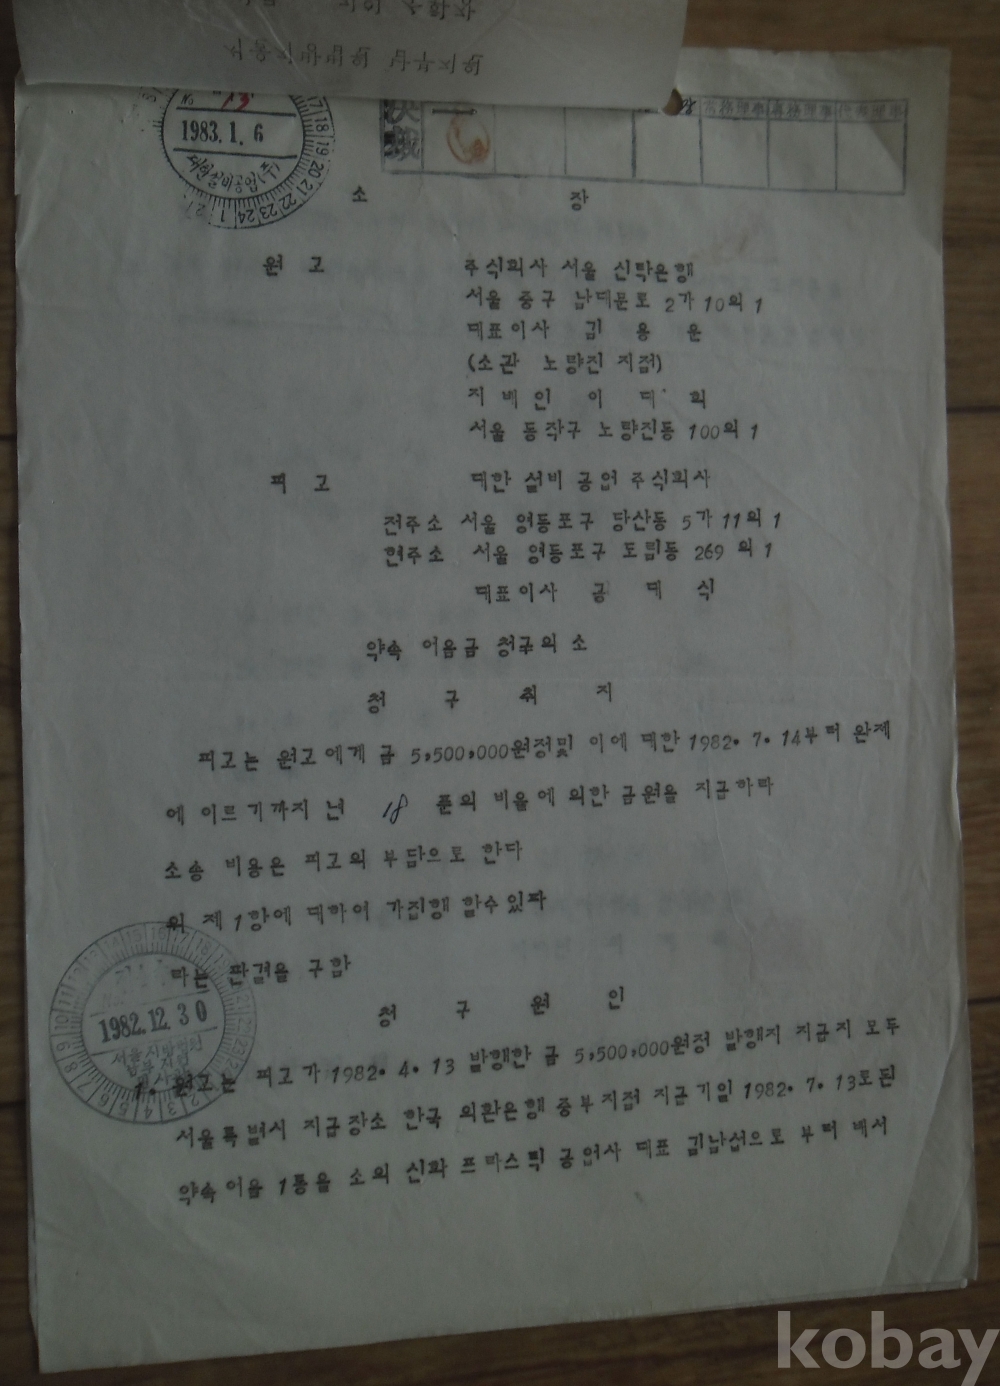 No 13
1983. 1. 6
대한설비공업(주)
決裁
常務理事 專務理事 代表理事
소 장
원 고 주식회사 서울 신탁은행
서울 중구 남대문로 2가 10의 1
대표이사 김 용 운
(소관 노량진 지점)
지 배 인 이 대 희
서울 동작구 노량진동 100의 1
피 고 대한 설비 공업 주식회사
전주소 서울 영등포구 당산동 5가 11의 1
현주소 서울 영등포구 도림동 269 의 1
대표이사 공 대 식
약속 어음금 청구의 소
청 구 취 지
피고는 원고에게 금 5,500,000원정및 이에 대한 1982. 7. 14부터 완제
에 이르기까지 년 18 푼의 비율에 의한 금원을 지급하라
소송 비용은 피고의 부담으로 한다
위 제 1항에 대하여 가집행 할수있다
라는 판결을 구함
청 구 원 인
1982. 12. 30
서울지방법원
1. 원고는 피고가 1982. 4. 13 발행한 금 5,500,000원정 발행지 지급지 모두
서울특별시 지급장소 한국 외환은행 중부지점 지급기일 1982. 7. 13로된
약속어음 1통을 소외 신화 프라스틱 공업사 대표 김남섭으로 부터 배서
kobay